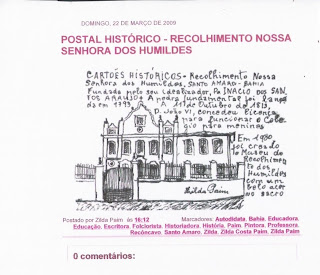 DOMINGO, 22 DE MARÇO DE 2009
POSTAL HISTÓRICO - RECOLHIMENTO NOSSA
SENHORA DOS HUMILDES
CARTÕES HISTÓRICOS - Recolhimento Nossa
Senhora dos Humildes, SANTO AMARO - BAHIA
Fundada pelo seu idealizador, Pe INACIO DOS SAN
TOS ARAUJO. A pedra fundamental foi lança
da em 1793. A 11 de Outubro de 1813,
D. João VI, concedeu licença
para funcionar o Colé
gio para meninas
Em 1980
foi criado
o Museu do
Recolhimen
to dos
Humildes
com um
belo acer
vo sacro
Zilda Paim
Postado por Zilda Paim às 16:12
Marcadores: Autodidata, Bahia, Educadora,
Educação, Escritora, Folclorista, Historiadora, História, Paim, Pintora, Professora,
Recôncavo, Santo Amaro, Zilda, Zilda Costa Paim, Zilda Paim
0 comentários: